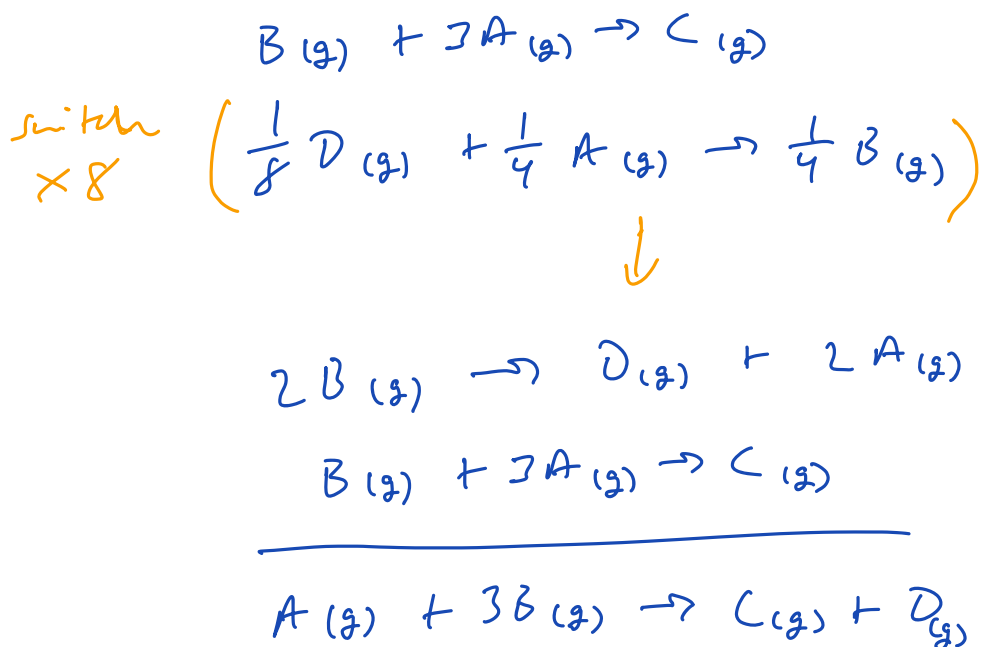 B(g) + 3A(g) → C(g)
switch
×8
(1/8 D(g) + 1/4 A(g) → 1/4 B(g))
↓
2B(g) → D(g) + 2A(g)
B(g) + 3A(g) → C(g)
A(g) + 3B(g) → C(g) + D(g)